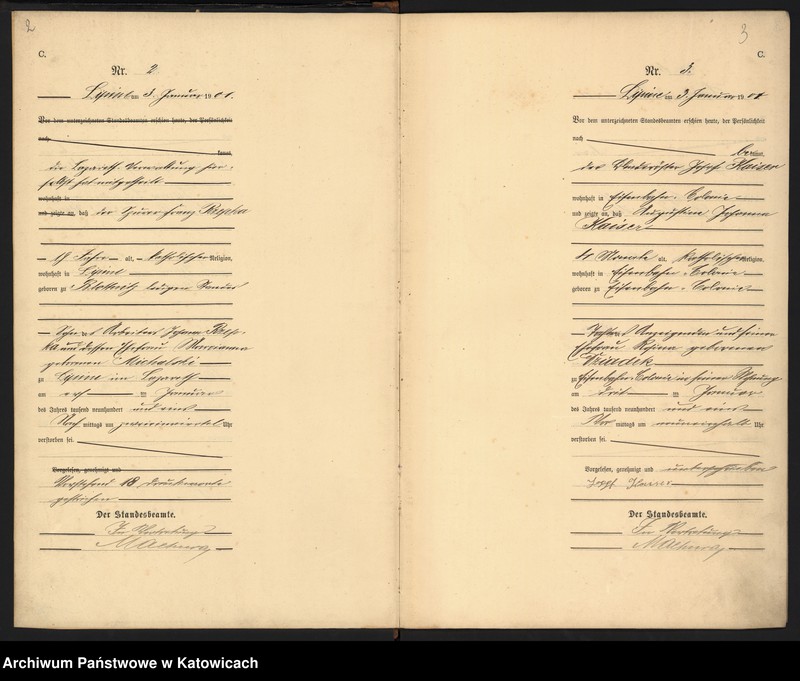 2
C.
Nr. 2.
Lipine am 3. Januar 1901.
Vor dem unterzeichneten Standesbeamten erschien heute, der Persönlichkeit
nach
kannt,
die Lazareth-Verwaltung hier-
selbst hat mitgetheilt
wohnhaft in
und zeigte an, daß der Franz
Jahr alt, katholischer Religion,
wohnhaft in Lipine
geboren zu
Sohn des Arbeiters Johann
und dessen Ehefrau Marianna
geborenen Michalski
zu Lipine im Lazareth
am ten Januar
des Jahres tausend neunhundert und eins
Nach mittags um Uhr
verstorben sei.
Vorgelesen, genehmigt und
Vorstehend 18 Druckworte
gestrichen.
Der Standesbeamte.
In Vertretung
3
C.
Nr. 3.
Lipine am 3. Januar 1901
Vor dem unterzeichneten Standesbeamten erschien heute, der Persönlichkeit
nach
be
der Josef Kaiser
wohnhaft in Eisenbahn-Colonie
und zeigte an, daß Augustine Johanna
Kaiser
Monate alt, katholischer Religion,
wohnhaft in Eisenbahn-Colonie
geboren zu Eisenbahn-Colonie
Tochter des Anzeigenden und seiner
Ehefrau Rosina geborenen
zu Eisenbahn-Colonie in seiner Wohnung
am dritten Januar
des Jahres tausend neunhundert und eins
Vor mittags um neuneinhalb Uhr
verstorben sei.
Vorgelesen, genehmigt und unterschrieben
Josef Kaiser
Der Standesbeamte.
In Vertretung
Archiwum Państwowe w Katowicach